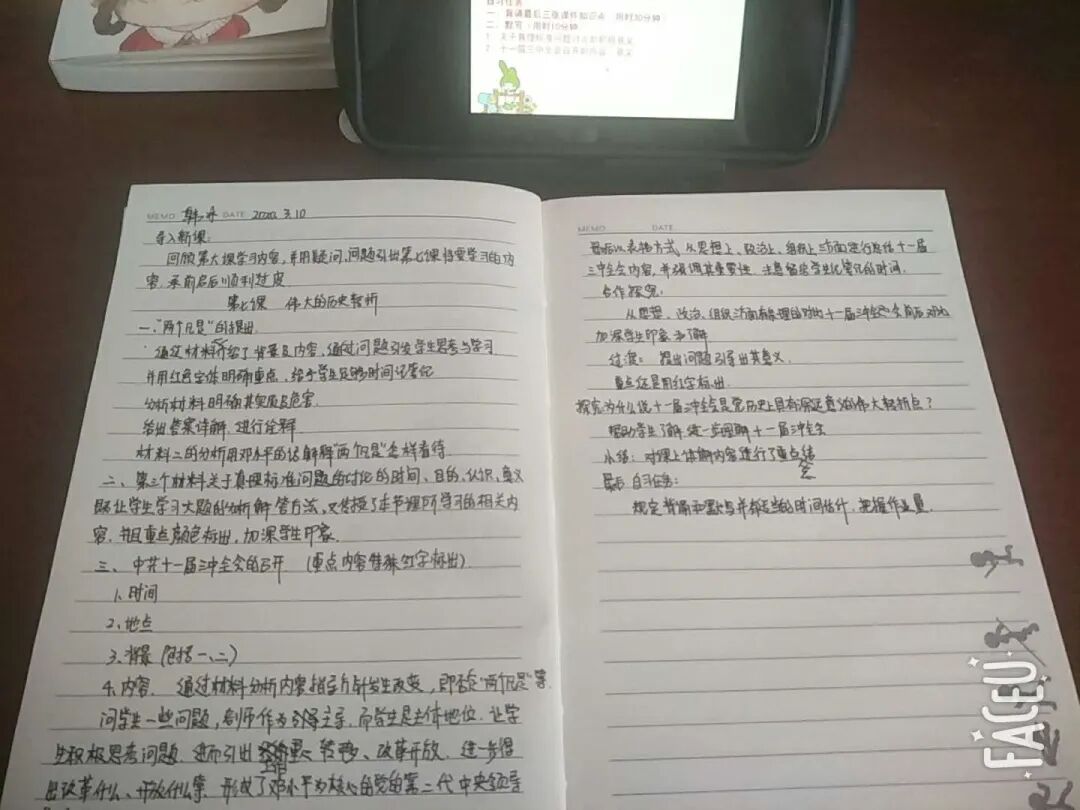 自习任务
一 背诵最后三张课件知识点 用时30分钟
二 默写 用时10分钟
1. 关于真理标准问题讨论的 意义
2. 十一届三中全会召开的内容、意义
MEMO DATE 2020. 3.10
导入新课:
回顾第六课学习内容,并用疑问,问题引出第七课将要学习的内
容,承前启后,顺利过度
第七课 伟大的历史转折
一、"两个凡是"的提出
通过材料介绍了背景及内容,通过问题引发学生思考与学习
并用红色字体明确重点,给予学生足够时间记笔记
分析材料明确其实质及危害
给出答案详解,进行诠释
材料二的分析用邓小平的话解释"两个凡是"怎样看待
二、第三个材料关于真理标准问题的讨论的时间、目的、认识、意义
既让学生学习大题的分析解答方法,又传授了本节课所学习的相关内
容,并且重点颜色标出,加深学生印象.
三、中共十一届三中全会的召开 (重点内容特殊红字标出)
1. 时间
2. 地点
3. 背景 (包括一、二)
4. 内容. 通过材料分析内容指导方针发生改变,即否定"两个凡是"等
问学生一些问题,老师作为引导主导,而学生是主体地位.让学
生积极思考问题,进而引出 工作重心转移、改革开放.进一步得
出改革什么、开放什么等 形成了邓小平为核心的党的第二代中央领导
MEMO DATE
最后以表格方式 从思想上、政治上、组织上三方面进行总结十一届
三中全会内容,并强调其重要性.注意留给学生化笔记的时间.
合作探究:
从思想、政治、组织三方面有条理的对比十一届三中全会前后对比
加深学生印象和了解
过渡: 提出问题引导出其意义.
重点还是用红字标出.
探究为什么说十一届三中全会是党历史上具有深远意义的伟大转折点?
帮助学生了解 进一步理解十一届三中全会
小结: 对课上体现内容进行了重点总结
最后 自习任务:
规定背诵和默写并都适当的时间估计.把握作业量
FACEU